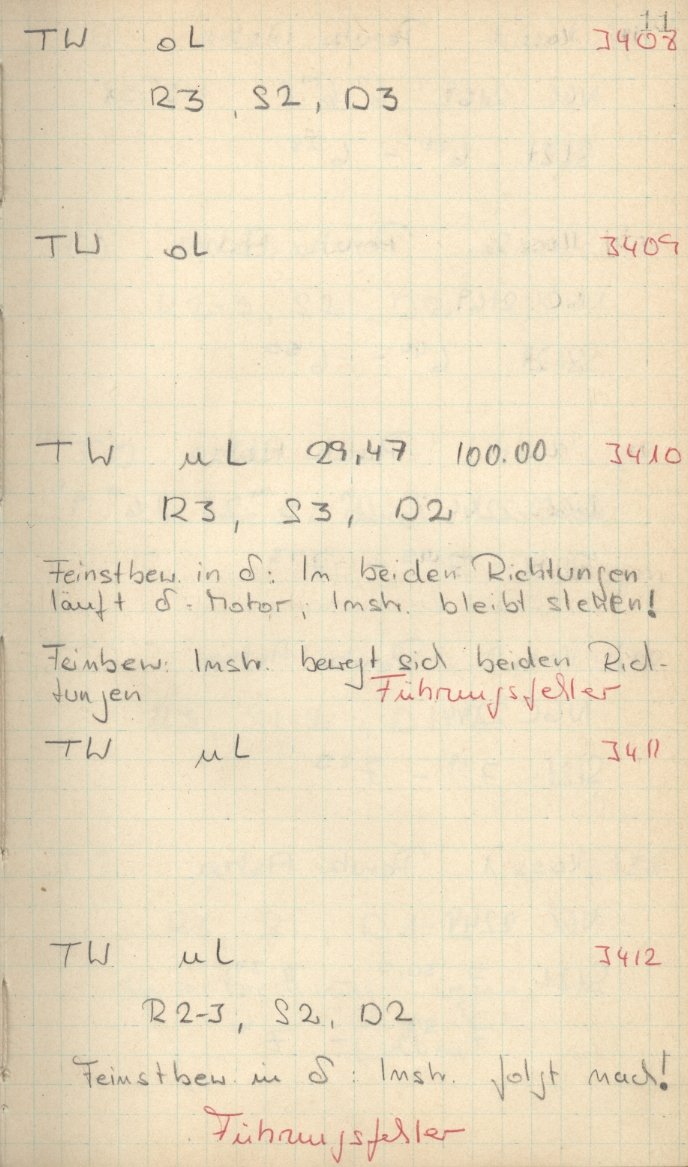 11
TW oL 3408
R3, S2, D3
TW oL 3409
TW uL 29,47 100.00 3410
R3, S3, D2
Feinstbew. in δ: In beiden Richtungen
läuft δ-Motor, Instr. bleibt stehen!
Feinbew: Instr. bewegt sich beiden Rich-
tungen Führungsfehler
TW uL 3411
TW uL 3412
R2-3, S2, D2
Feinstbew. in δ: Instr. folgt nach!
Führungsfehler